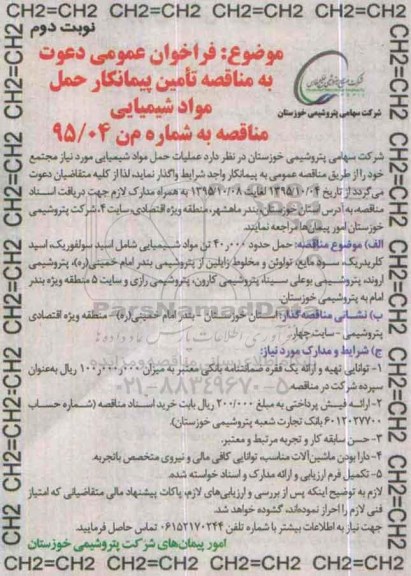 CH2=CH2 CH2=CH2 CH2=CH2 CH2=CH2
نوبت دوم
موضوع: فراخوان عمومی دعوت
به مناقصه تأمین پیمانکار حمل
مواد شیمیایی
مناقصه به شماره م‌ن ۹۵/۰۴
شرکت سهامی پتروشیمی خوزستان
شرکت سهامی پتروشیمی خوزستان در نظر دارد عملیات حمل مواد شیمیایی مورد نیاز مجتمع
خود را از طریق مناقصه عمومی به پیمانکار واجد شرایط واگذار نماید، لذا از کلیه متقاضیان دعوت
می‌گردد از تاریخ ۱۳۹۵/۱۰/۰۴ لغایت ۱۳۹۵/۱۰/۰۸ به همراه مدارک لازم جهت دریافت اسناد
مناقصه، به آدرس استان خوزستان، بندر ماهشهر، منطقه ویژه اقتصادی، سایت ۴، شرکت پتروشیمی
خوزستان امور پیمان‌ها مراجعه نمایند.
الف) موضوع مناقصه: حمل حدود ۴۰٫۰۰۰ تن مواد شیمیایی شامل اسید سولفوریک، اسید
کلریدریک، سود مایع، تولوئن و مخلوط زایلین از پتروشیمی بندر امام خمینی(ره)، پتروشیمی
اروند، پتروشیمی بوعلی سینا، پتروشیمی کارون، پتروشیمی رازی و سایت ۵ منطقه ویژه بندر
امام به پتروشیمی خوزستان
ب) نشانی مناقصه‌گذار: استان خوزستان - بندر امام خمینی(ره) - منطقه ویژه اقتصادی
پتروشیمی - سایت چهار
ج) شرایط و مدارک مورد نیاز:
۱- توانایی تهیه و ارائه یک فقره ضمانتنامه بانکی معتبر به میزان ریال به‌عنوان
سپرده شرکت در مناقصه
۲- ارائه فیش پرداختی به مبلغ ۲۰۰/۰۰۰ ریال بابت خرید اسناد مناقصه (شماره حساب
۶۰۱۲۰۲۷۷۰۰ بانک تجارت شعبه پتروشیمی خوزستان).
۳- حسن سابقه کار و تجربه مرتبط و معتبر.
۴- دارا بودن ماشین‌آلات مناسب، توانایی کافی مالی و نیروی متخصص باتجربه.
۵- تکمیل فرم ارزیابی و ارائه مدارک و اسناد خواسته شده.
لازم به توضیح اینکه پس از بررسی و ارزیابی‌های لازم، پاکات پیشنهاد مالی متقاضیانی که امتیاز
فنی لازم را احراز نموده‌اند، گشوده خواهد شد.
جهت نیاز به اطلاعات بیشتر با شماره تلفن ۰۶۱۵۲۱۷۰۲۴۴ تماس حاصل فرمایید.
امور پیمان‌های شرکت پتروشیمی خوزستان
CH2=CH2 CH2=CH2 CH2=CH2 CH2=CH2